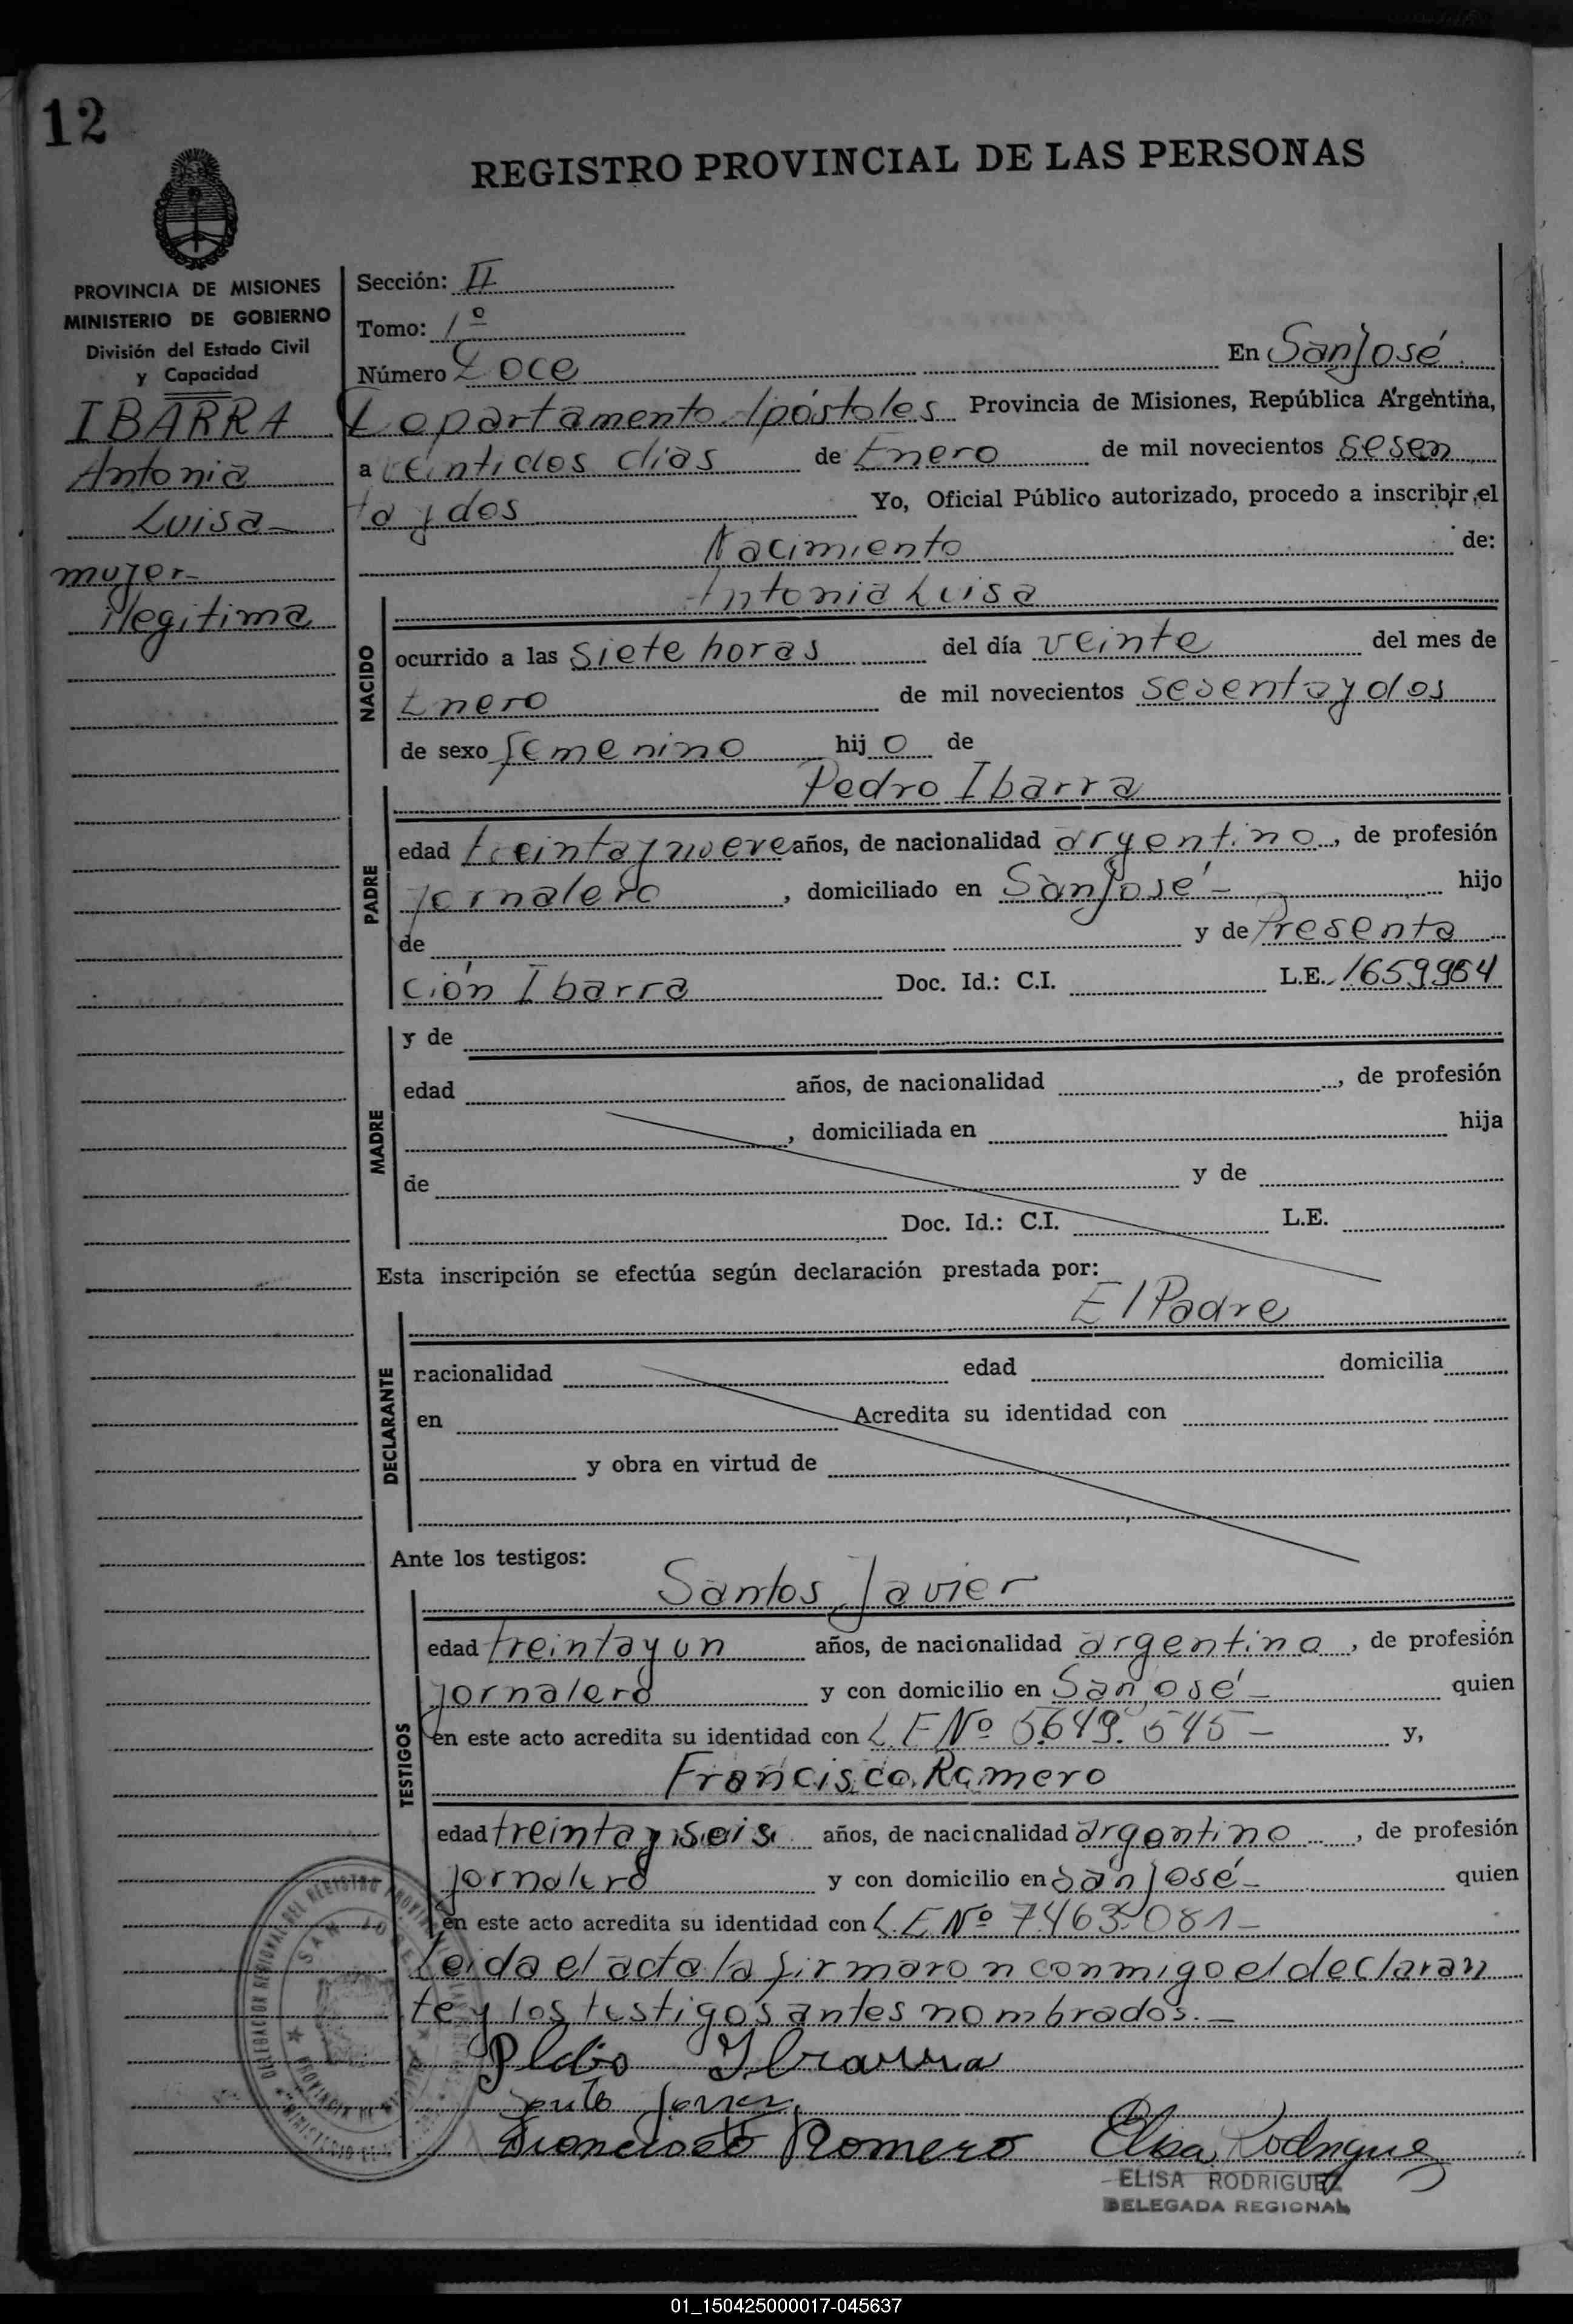 12
REGISTRO PROVINCIAL DE LAS PERSONAS
PROVINCIA DE MISIONES
MINISTERIO DE GOBIERNO
División del Estado Civil
y Capacidad
IBARRA
Antonia
Luisa
mujer
ilegitima
Sección: II
Tomo: 1º
Número Doce En San José
Departamento Apóstoles Provincia de Misiones, República Argentina,
a veintidos dias de Enero de mil novecientos sesen
ta y dos Yo, Oficial Público autorizado, procedo a inscribir el
Nacimiento de:
Antonia Luisa
NACIDO
ocurrido a las siete horas del día veinte del mes de
Enero de mil novecientos sesenta y dos
de sexo femenino hij o de
Pedro Ibarra
PADRE
edad treinta y nueve años, de nacionalidad argentino, de profesión
jornalero, domiciliado en San José hijo
de y de Presenta
ción Ibarra Doc. Id.: C.I. L.E. 1659954
MADRE
y de
edad años, de nacionalidad , de profesión
, domiciliada en hija
de y de
Doc. Id.: C.I. L.E.
Esta inscripción se efectúa según declaración prestada por:
El Padre
DECLARANTE
nacionalidad edad domicilia
en Acredita su identidad con
y obra en virtud de
Ante los testigos:
Santos Javier
TESTIGOS
edad treinta y un años, de nacionalidad argentino, de profesión
jornalero y con domicilio en San José quien
en este acto acredita su identidad con L.E Nº 5.649.545 — y,
Francisco Romero
edad treinta y seis años, de nacionalidad argentino, de profesión
jornalero y con domicilio en San José quien
en este acto acredita su identidad con L.E Nº 7.463.081 —
Leida el acta la firmaron conmigo el declaran
te y los testigos antes nombrados.—
Pedro Ibarra
Francisco Romero Elisa Rodriguez
ELISA RODRIGUEZ
DELEGADA REGIONAL
01_150425000017-045637